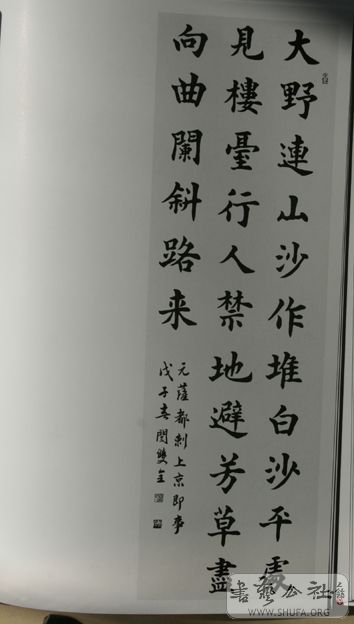 大野連山沙作堆白沙平處
見樓臺行人禁地避芳草盡
向曲闌斜路来
元薩都剌上京即事
戊子春閔雙全
書藝公社
WWW.SHUFA.ORG